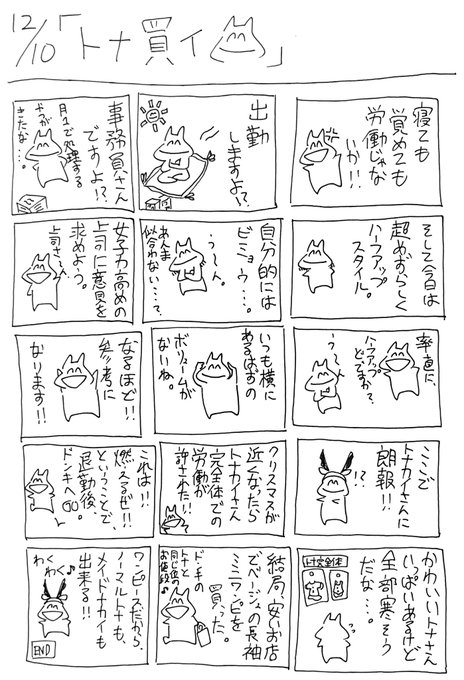 12/10「トナ買イ」
寝ても
覚めても
労働じゃな
いか!!
出勤
しますよ!?
事務員さん
ですよ!?
月1で処理する
やつが
きたな…。
そして今日は
超めずらしく
ハーフアップ
スタイル。
自分的には
ビミョウ…。
う〜ん。
あんま
似合わない…?
女子力高めの
上司に意見を
求めよう。
上司さ〜ん
率直に、
ハーフアップ
どですか?
う〜ん
いつも横に
あるはずの
ボリュームが
ないね。
なるほど!!
参考に
なります!!
ここで
トナカイさんに
朗報!!
!?
クリスマスが
近くなったら
トナカイさん
完全体での
労働が
許された!!
これは!!
燃えるぜ!!
ということで、
退勤後、
ドンキへGO。
かわいいトナさん
いっぱいあるけど
全部寒そう
だな…。
トナ完全体
結局、安いお店
でベージュの長袖
ミニワンピを
買った。
ドンキの
トナと
同じ位の
お値段♪
ワンピースだから、
ノーマルトナも、
メイドトナカイも
出来る!!
わく
わく♪
END